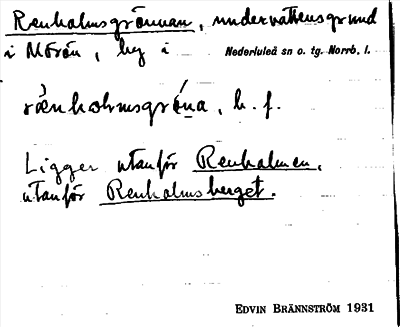 Renholmsgrönnan, undervattensgrund
i Mörön, by i Nederluleå sn o. tg. Norrb. l.
b. f.
Ligger utanför Renholmen,
utanför Renholmsberget.
EDVIN BRÄNNSTRÖM 1931